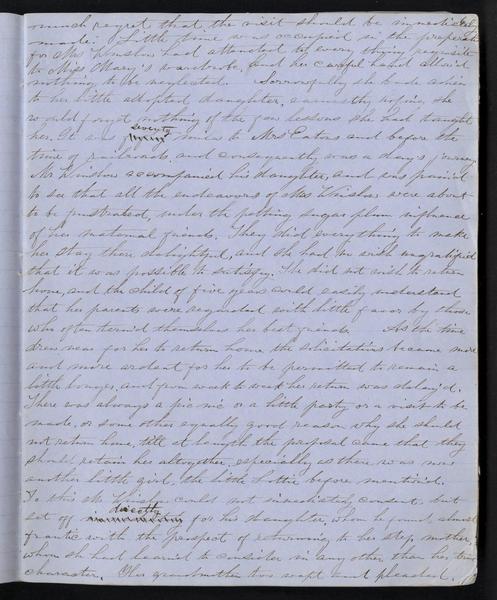 much regret that the visit should be immediately
made. Little time was occupied in the preparation
for Mrs Winslow had attended to every thing requisite
to Miss Mary's wardrobe, and her careful hand allowed
nothing to be neglected. Sorrowfully she bade adieu
to her little adopted daughter, earnestly hoping she
would forget nothing of the few lessons she had taught
her. It was seventy miles to Mrs Eatons and before the
time of railroads, and consequently was a days journey.
Mr Winslow accompanied his daughter, and was pained
to see that all the endeavors of Mrs Winslow were about
to be frustrated, under the petting sugar plum influence
of her maternal friends. They did everything to make
her stay there delightful, and she had no wish ungratified
that it was possible to satisfy. She did not wish to return
home, and the child of five years could easily understand
that her parents were regarded with little favor by those
who often term'd themselves her best friends. As the time
drew near for her to return home the solicitations became more
and more ardent for her to be permitted to remain a
little longer, and from week to week her return was delay'd.
There was always a pic nic or a little party or a visit to be
made, or some other equally good reason why she should
not return home, till at length the proposal came that they
should retain her altogether, especially as there was now
another little girl, the little Lottie before mention'd.
To this Mr Winslow could not immediately consent, but
set off directly for his daughter, whom he found almost
frantic with the prospect of returning to her step mother,
whom she had learned to consider in any other than her true
character. Her grandmother too wept and pleaded,